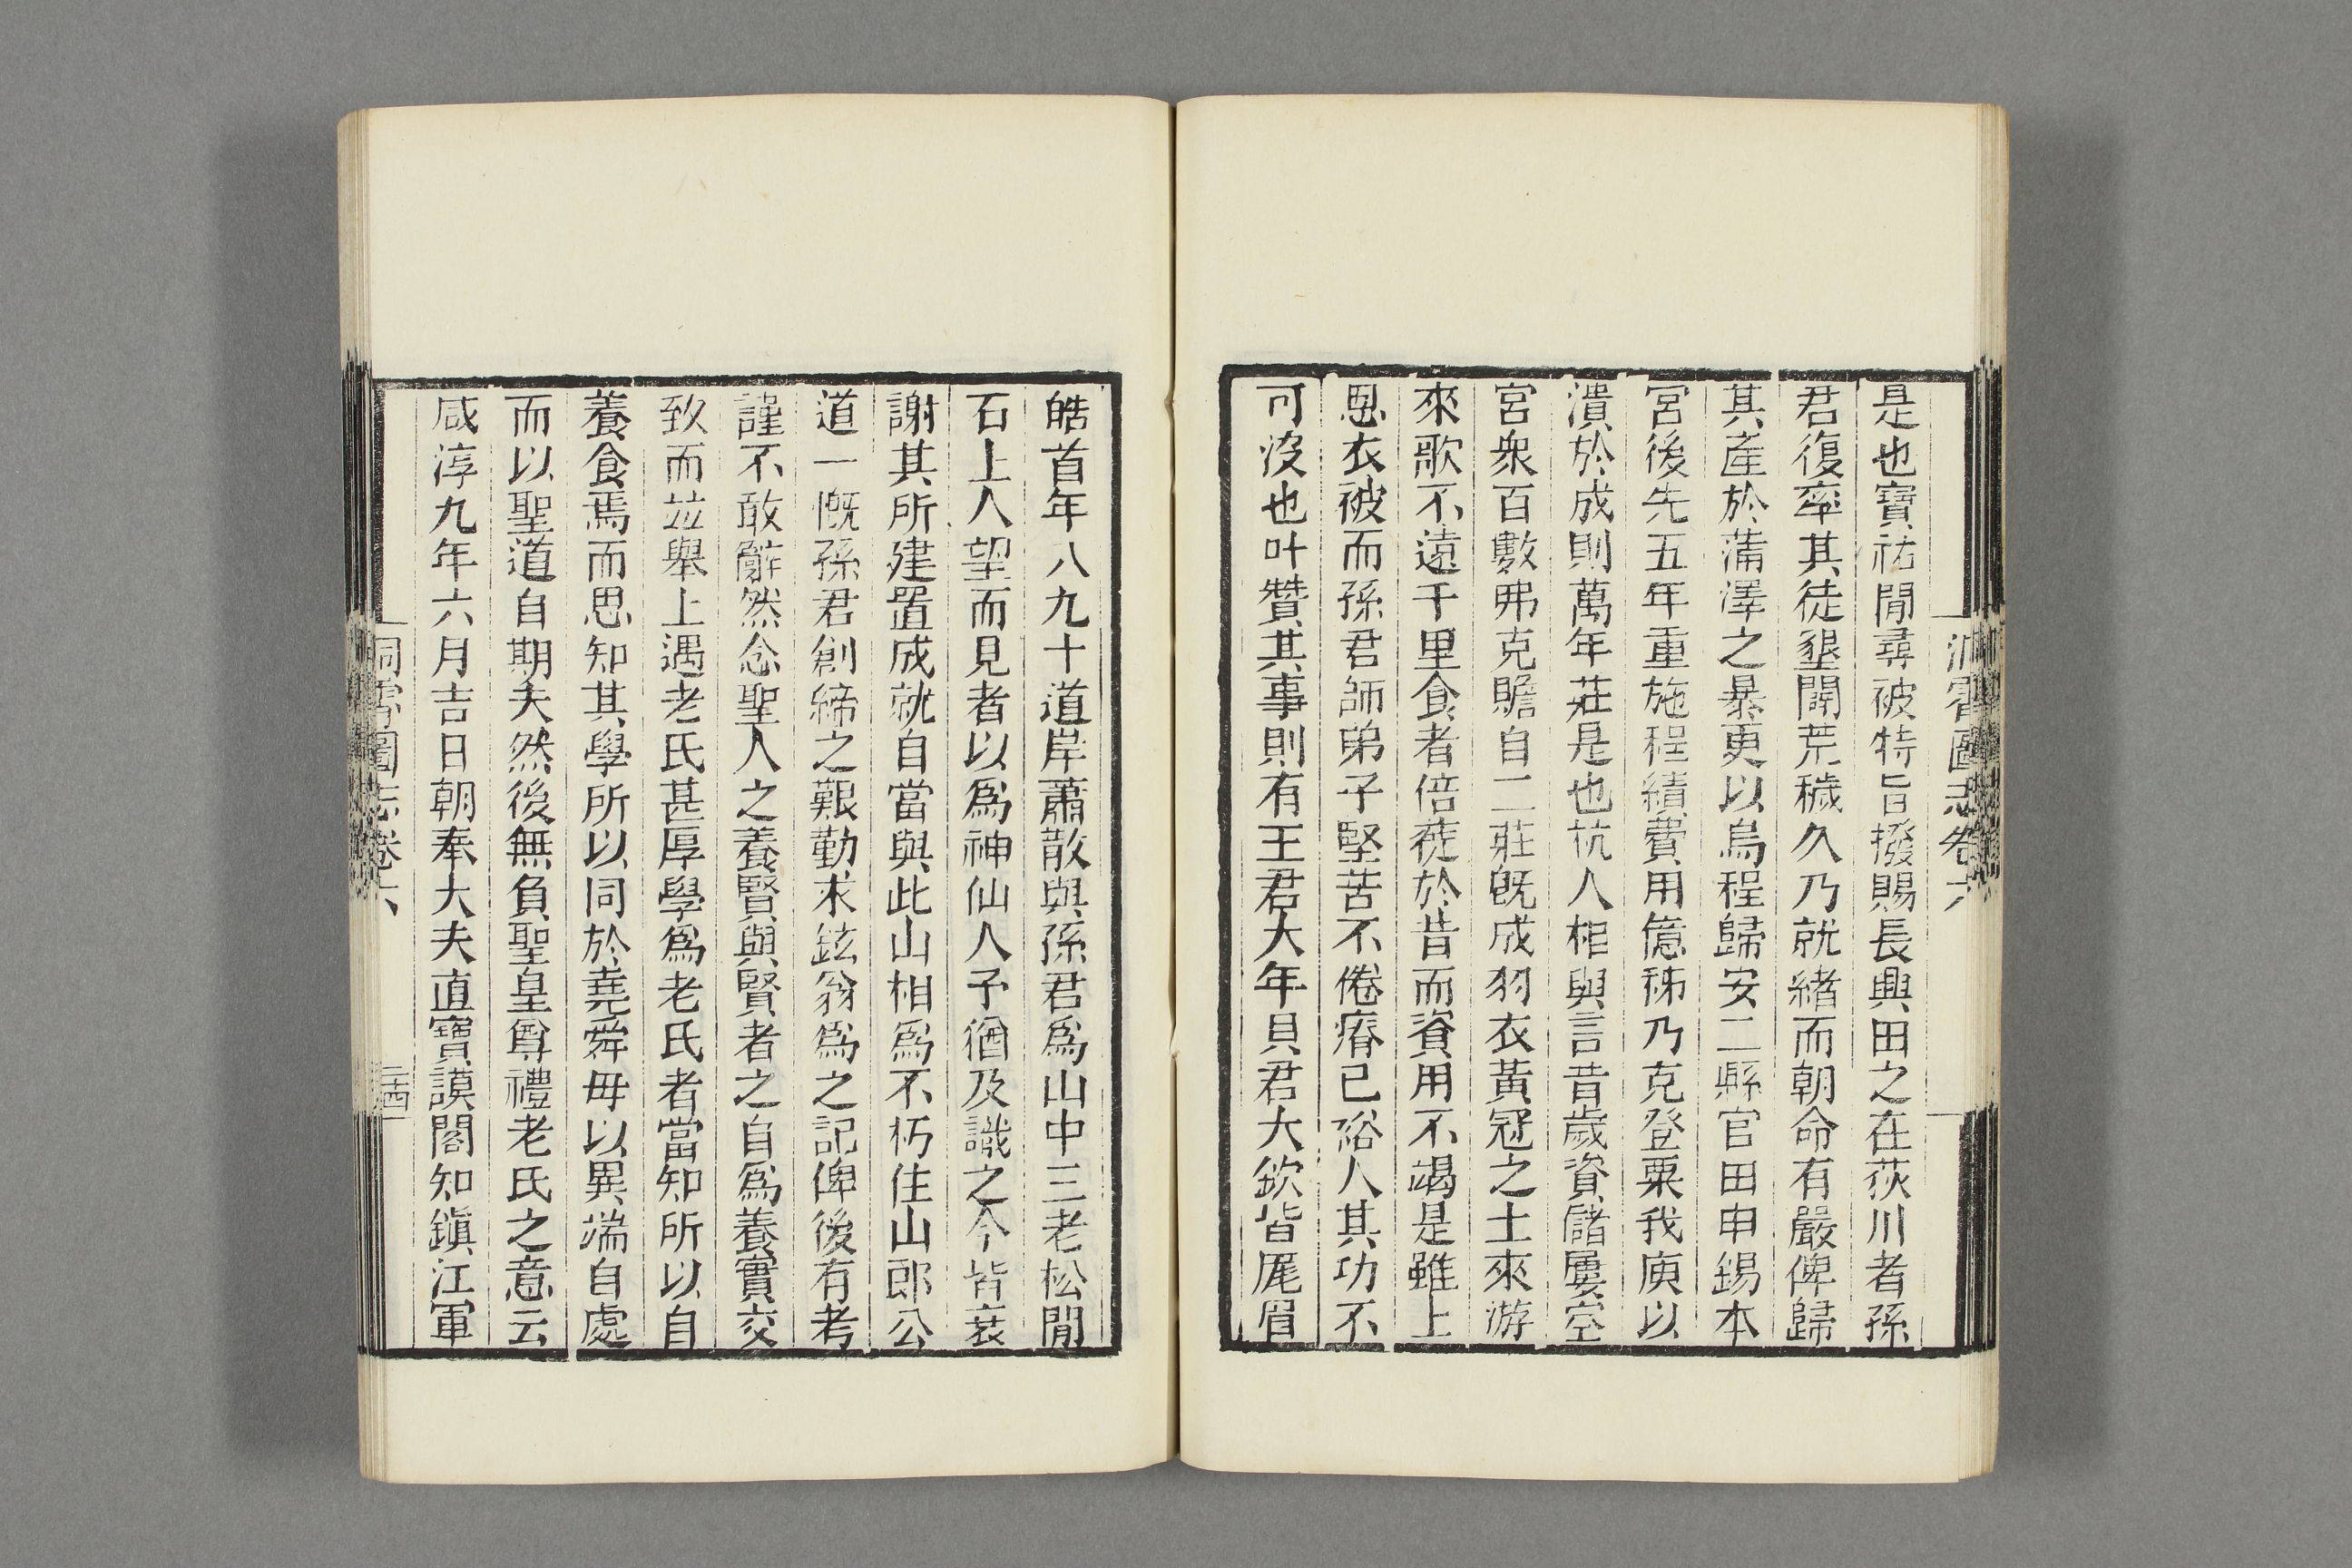 洞霄圖志卷六
是也寶祐閒尋被特旨撥賜長興田之在荻川者孫
君復率其徒墾闢荒穢久乃就緒而朝命有嚴俾歸
其產於蒲澤之暴更以烏程歸安二縣官田申錫本
宮後先五年重施程績費用億秭乃克登粟我庾以
潰於成則萬年莊是也杭人相與言昔歲資儲屢空
宮衆百數弗克贍自二莊旣成羽衣黃冠之士來游
來歌不遠千里食者倍蓰於昔而資用不竭是雖上
恩衣被而孫君師弟子堅苦不倦瘠已裕人其功不
可沒也叶贊其事則有王君大年貝君大欽皆厖眉
皓首年八九十道岸蕭散與孫君爲山中三老松閒
石上人望而見者以爲神仙人予猶及識之今皆衰
謝其所建置成就自當與此山相爲不朽住山郎公
道一慨孫君創締之艱勤求鉉翁爲之記俾後有考
謹不敢辭然念聖人之養賢與賢者之自爲養實交
致而竝舉上遇老氏甚厚學爲老氏者當知所以自
養食焉而思知其學所以同於堯舜毋以異端自處
而以聖道自期夫然後無負聖皇尊禮老氏之意云
咸淳九年六月吉日朝奉大夫直寶謨閣知鎭江軍
洞霄圖志卷六
二十四